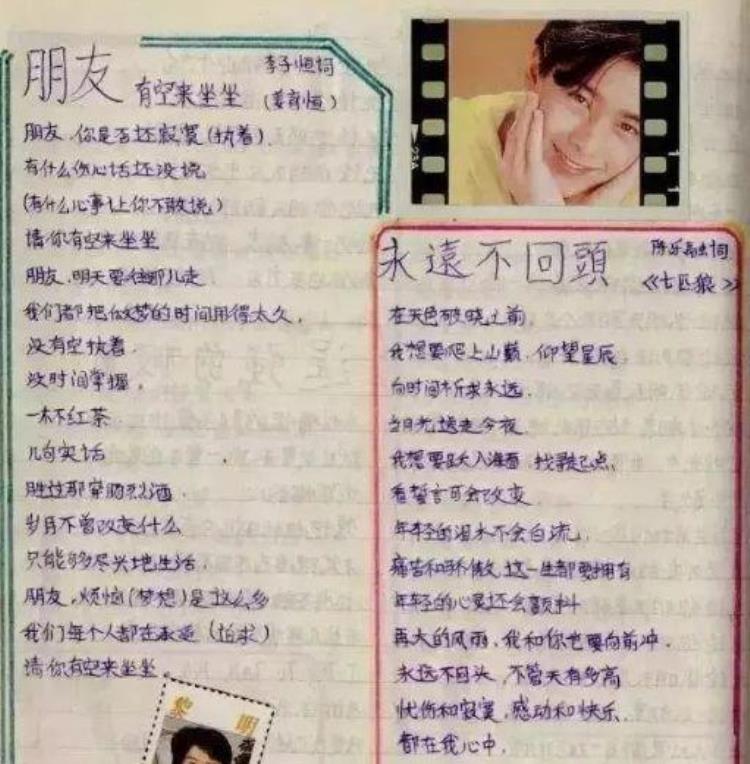 朋友
有空来坐坐
李子恒词
(姜育恒)
朋友,你是否还寂寞(执着)
有什么伤心话还没说
(有什么心事让你不敢说)
请你有空来坐坐
朋友,明天要往那儿走
我们都把做梦的时间用得太久
没有空执着
没时间掌握
一杯红茶
几句实话
胜过那穿肠烈酒
岁月不曾改变什么
只能够尽兴地生活
朋友,烦恼(梦想)是这么多
我们每个人都在承受(追求)
请你有空来坐坐。
永遠不回頭
陈乐融词
《七匹狼》
在天色破晓之前
我想要爬上山巅,仰望星辰
向时间祈求永远
当月光越走今夜
我想要跃入海面,找寻起点
看誓言可会改变
年轻的泪水不会白流
痛苦和骄傲,这一生都要拥有
年轻的心灵还会颤抖
再大的风雨,我和你也要向前冲.
永远不回头,不管天有多高
忧伤和寂寞,感动和快乐
都在我心中.
黎 明